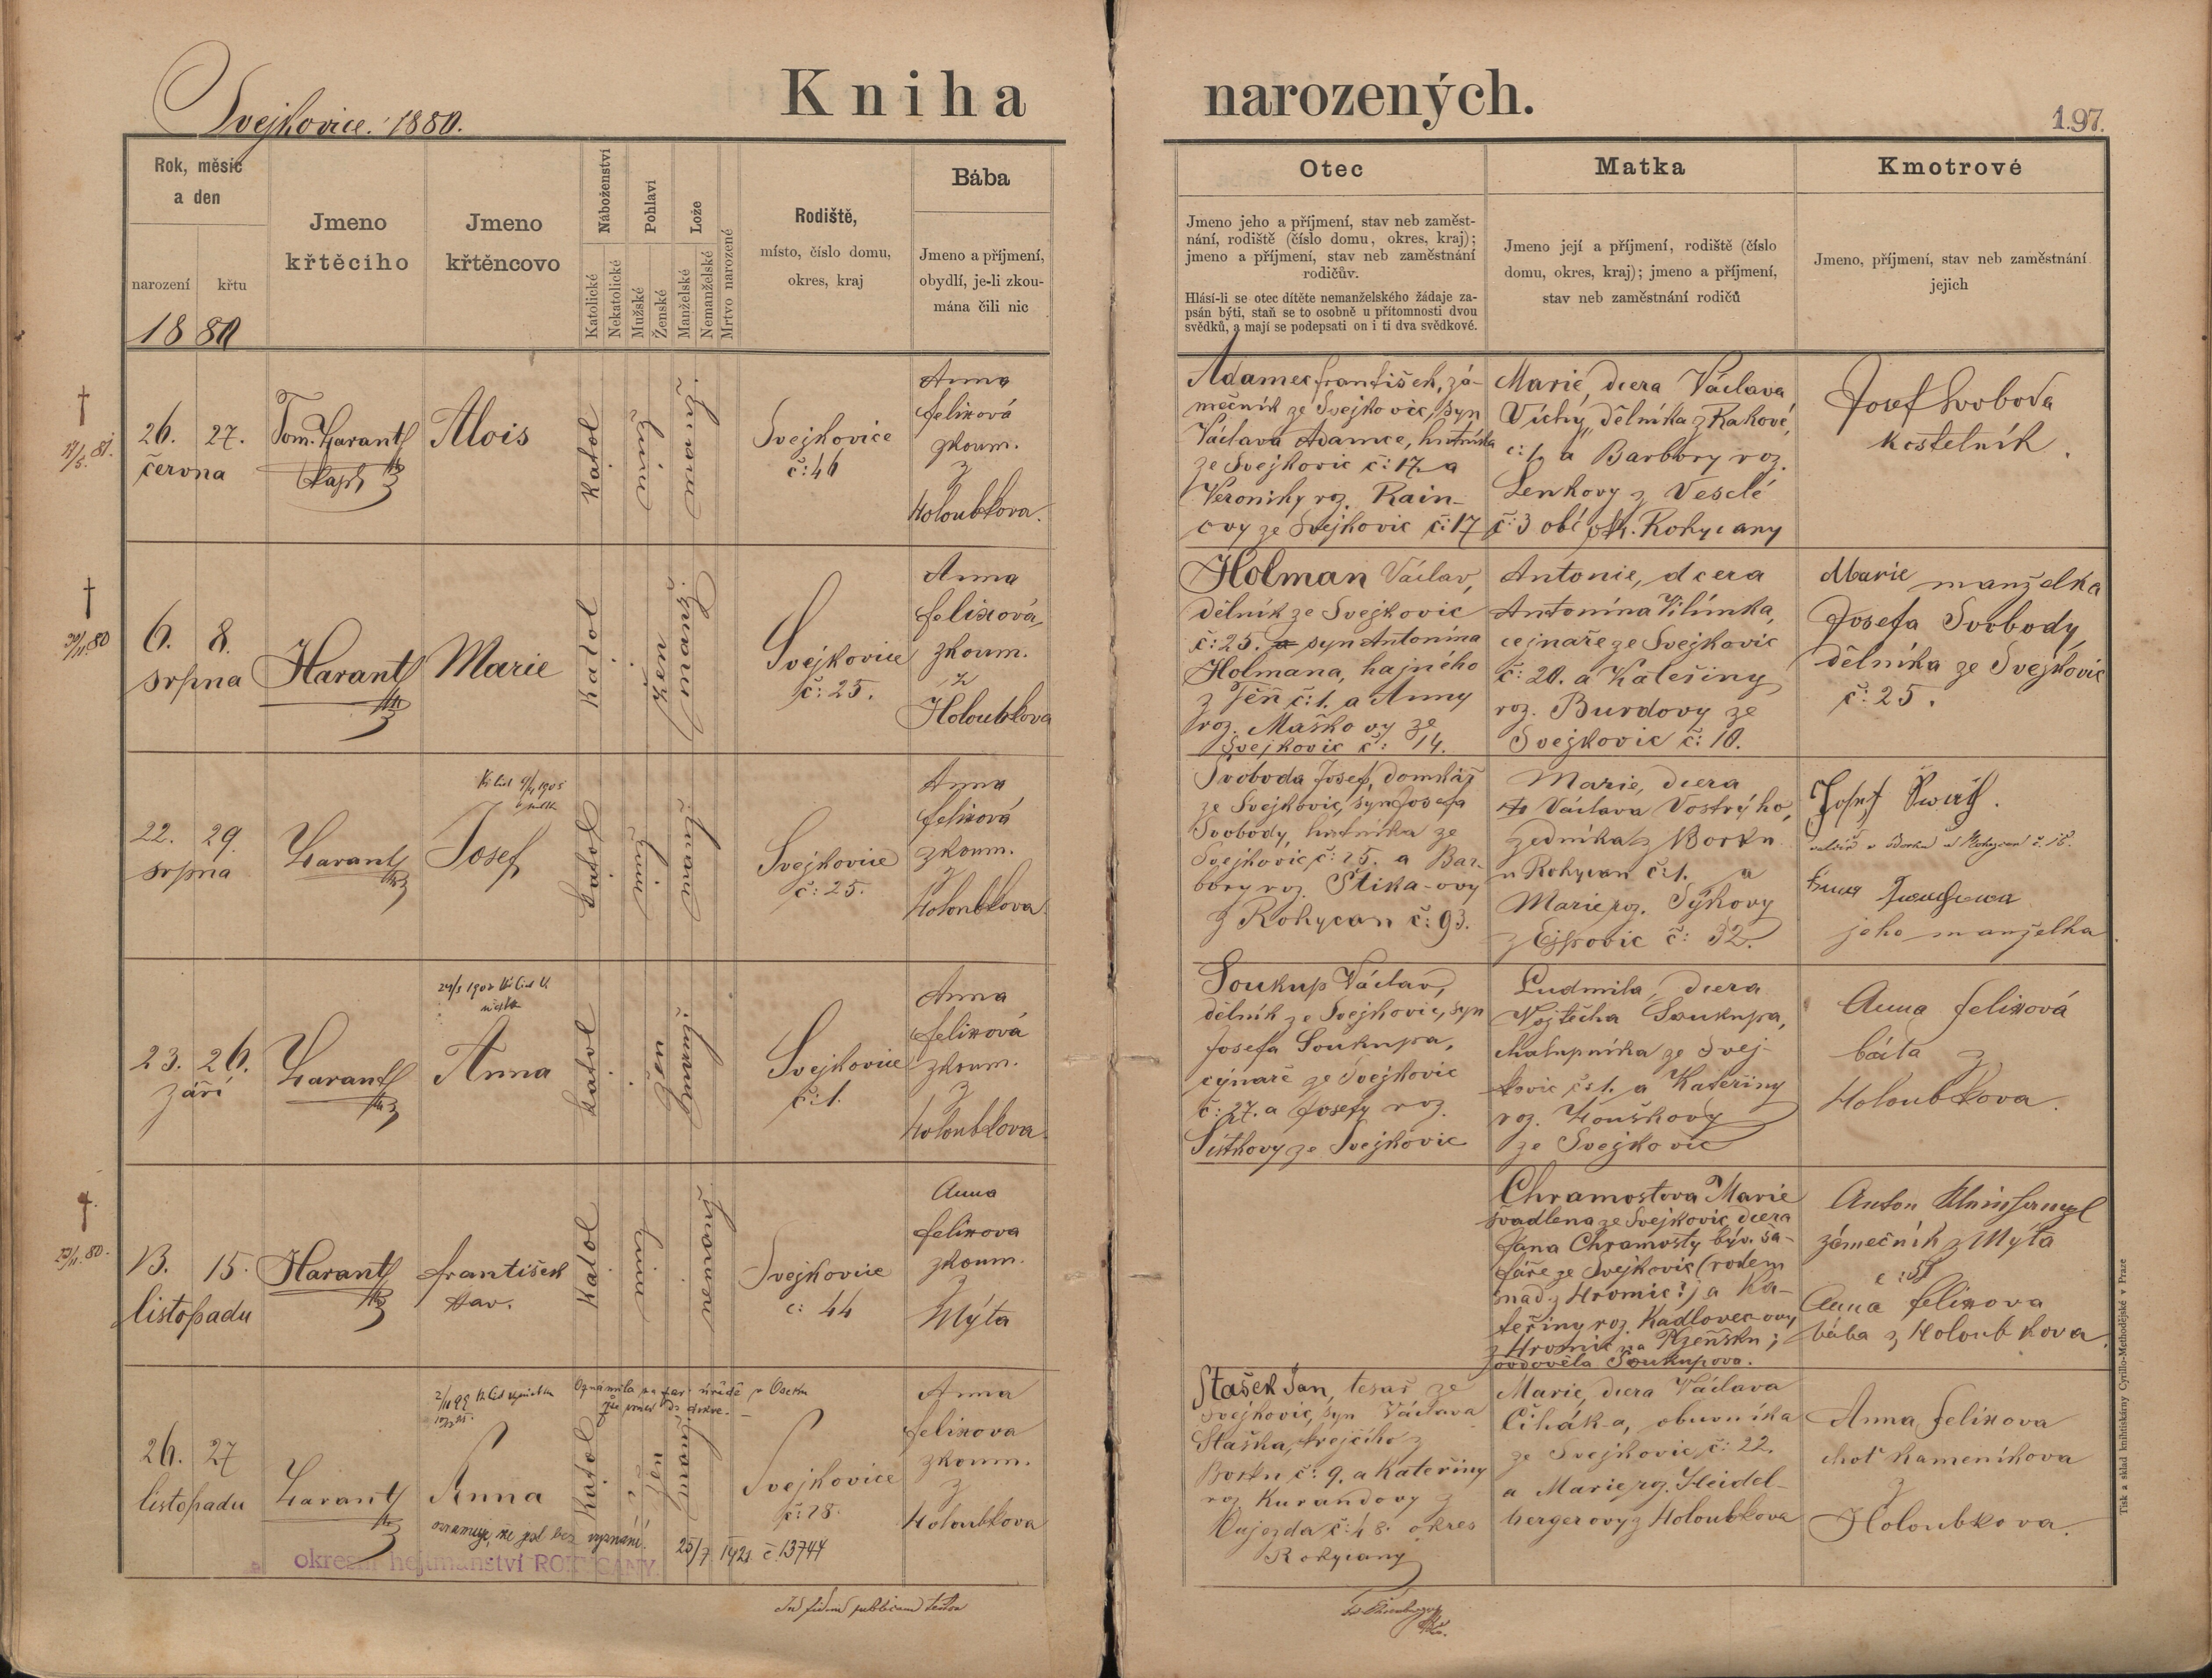 Svejkovice. 1880.
Kniha narozených.
197.
Rok, měsíc
a den
narození
křtu
1880
Jmeno
křtěcího
Jmeno
křtěncovo
Náboženství
Katolické
Nekatolické
Pohlaví
Mužské
Ženské
Lože
Manželské
Nemanželské
Mrtvo narozené
Rodiště,
místo, číslo domu,
okres, kraj
Bába
Jmeno a příjmení,
obydlí, je-li zkou-
mána čili nic
Otec
Jmeno jeho a příjmení, stav neb zaměst-
nání, rodiště (číslo domu, okres, kraj);
jmeno a příjmení, stav neb zaměstnání
rodičův.
Hlásí-li se otec dítěte nemanželského žádaje za-
psán býti, staň se to osobně u přítomnosti dvou
svědků, a mají se podepsati on i ti dva svědkové.
Matka
Jmeno její a příjmení, rodiště (číslo
domu, okres, kraj); jmeno a příjmení,
stav neb zaměstnání rodičů
Kmotrové
Jmeno, příjmení, stav neb zaměstnání
jejich
†
26. 27.
června
Tom. Harant
Alois
katol
Svejkovice
č: 46
Anna
Felixová
zkoum.
z
Holoubkova.
Adamec František, zá-
mečník ze Svejkovic, syn
Václava Adamce, hutníka
ze Svejkovic č: 17. a
Veroniky roz. Rain-
ovy ze Svejkovic č: 17
Marie, dcera Václava
Víchy, dělníka z Rakové,
č: 1. a Barbory roz.
Lenkovy z Veselé
č: 3 obě okr. Rokycany
Josef Svoboda
kostelník.
†
6. 8.
srpna
Harant
Marie
katol
Svejkovice
č: 25.
Anna
Felixová,
zkoum.
z
Holoubkova
Holman Václav,
dělník ze Svejkovic
č: 25. syn Antonína
Holmana, hajného
z Těň č: 1. a Anny
roz. Maškovy ze
Svejkovic č: 14.
Antonie, dcera
Antonína Vilímka,
cejnaře ze Svejkovic
č: 20. a Kateřiny
roz. Burdovy ze
Svejkovic č: 10.
Marie manželka
Josefa Svobody,
dělníka ze Svejkovic
č: 25.
22. 29.
srpna
Harant
Josef
katol
Svejkovice
č: 25.
Anna
Felixová
zkoum.
z
Holoubkova
Svoboda Josef, domkář
ze Svejkovic, syn Josefa
Svobody, hutníka ze
Svejkovic č: 25. a Bar-
bory roz. Štika-ovy
z Rokycan č: 93.
Marie, dcera
Václava Vostrýho,
zedníka z Borku
u Rokycan č: 1. a
Marie roz. Sýkovy
z Ejpovic č: 32.
Josef
jeho manželka
23. 26.
září
Harant
Anna
katol
Svejkovice
č: 1.
Anna
Felixová
zkoum.
z
Holoubkova.
Soukup Václav,
dělník ze Svejkovic, syn
Josefa Soukupa,
cýnaře ze Svejkovic
č: 27. a Josefy roz.
ze Svejkovic
Ludmila, dcera
Vojtěcha Soukupa,
chalupníka ze Svej-
kovic č: 1. a Kateřiny
roz.
ze Svejkovic
Anna Felixová
bába z
Holoubkova.
†
13. 15.
listopadu
Harant
František
katol
Svejkovice
č: 44
Anna
Felixova
zkoum.
z
Mýta
Chramostova Marie
švadlena ze Svejkovic, dcera
Jana Chramosty býv. ša-
fáře ze Svejkovic (rodem
snad z Hromic?) a Ka-
teřiny roz. Kadlovec-ovy
z Hromic na Plzeňsku;
ovdověla Soukupova.
Anton
zámečník z Mýta
Anna Felixova
bába z Holoubkova.
26. 27
listopadu
Harant
Anna
katol
Svejkovice
č: 28.
oznamuje, že jest bez vyznání. 25/7 1921. č. 13744
okresní hejtmanství ROKYCANY
Anna
Felixova
zkoum.
z
Holoubkova
Stašek Jan, tesař ze
Svejkovic, syn Václava
Staška, krejčího z
Borku č: 9. a Kateřiny
roz. Kurandovy z
Oujezda č: 48. okres
Rokycany
Marie, dcera Václava
Čihák-a, obuvníka
ze Svejkovic, č: 22.
a Marie roz. Heidel-
bergerovy z Holoubkova
Anna Felixova
choť kameníkova
z
Holoubkova.
Tisk a sklad knihtiskárny Cyrillo-Methodějské v Praze